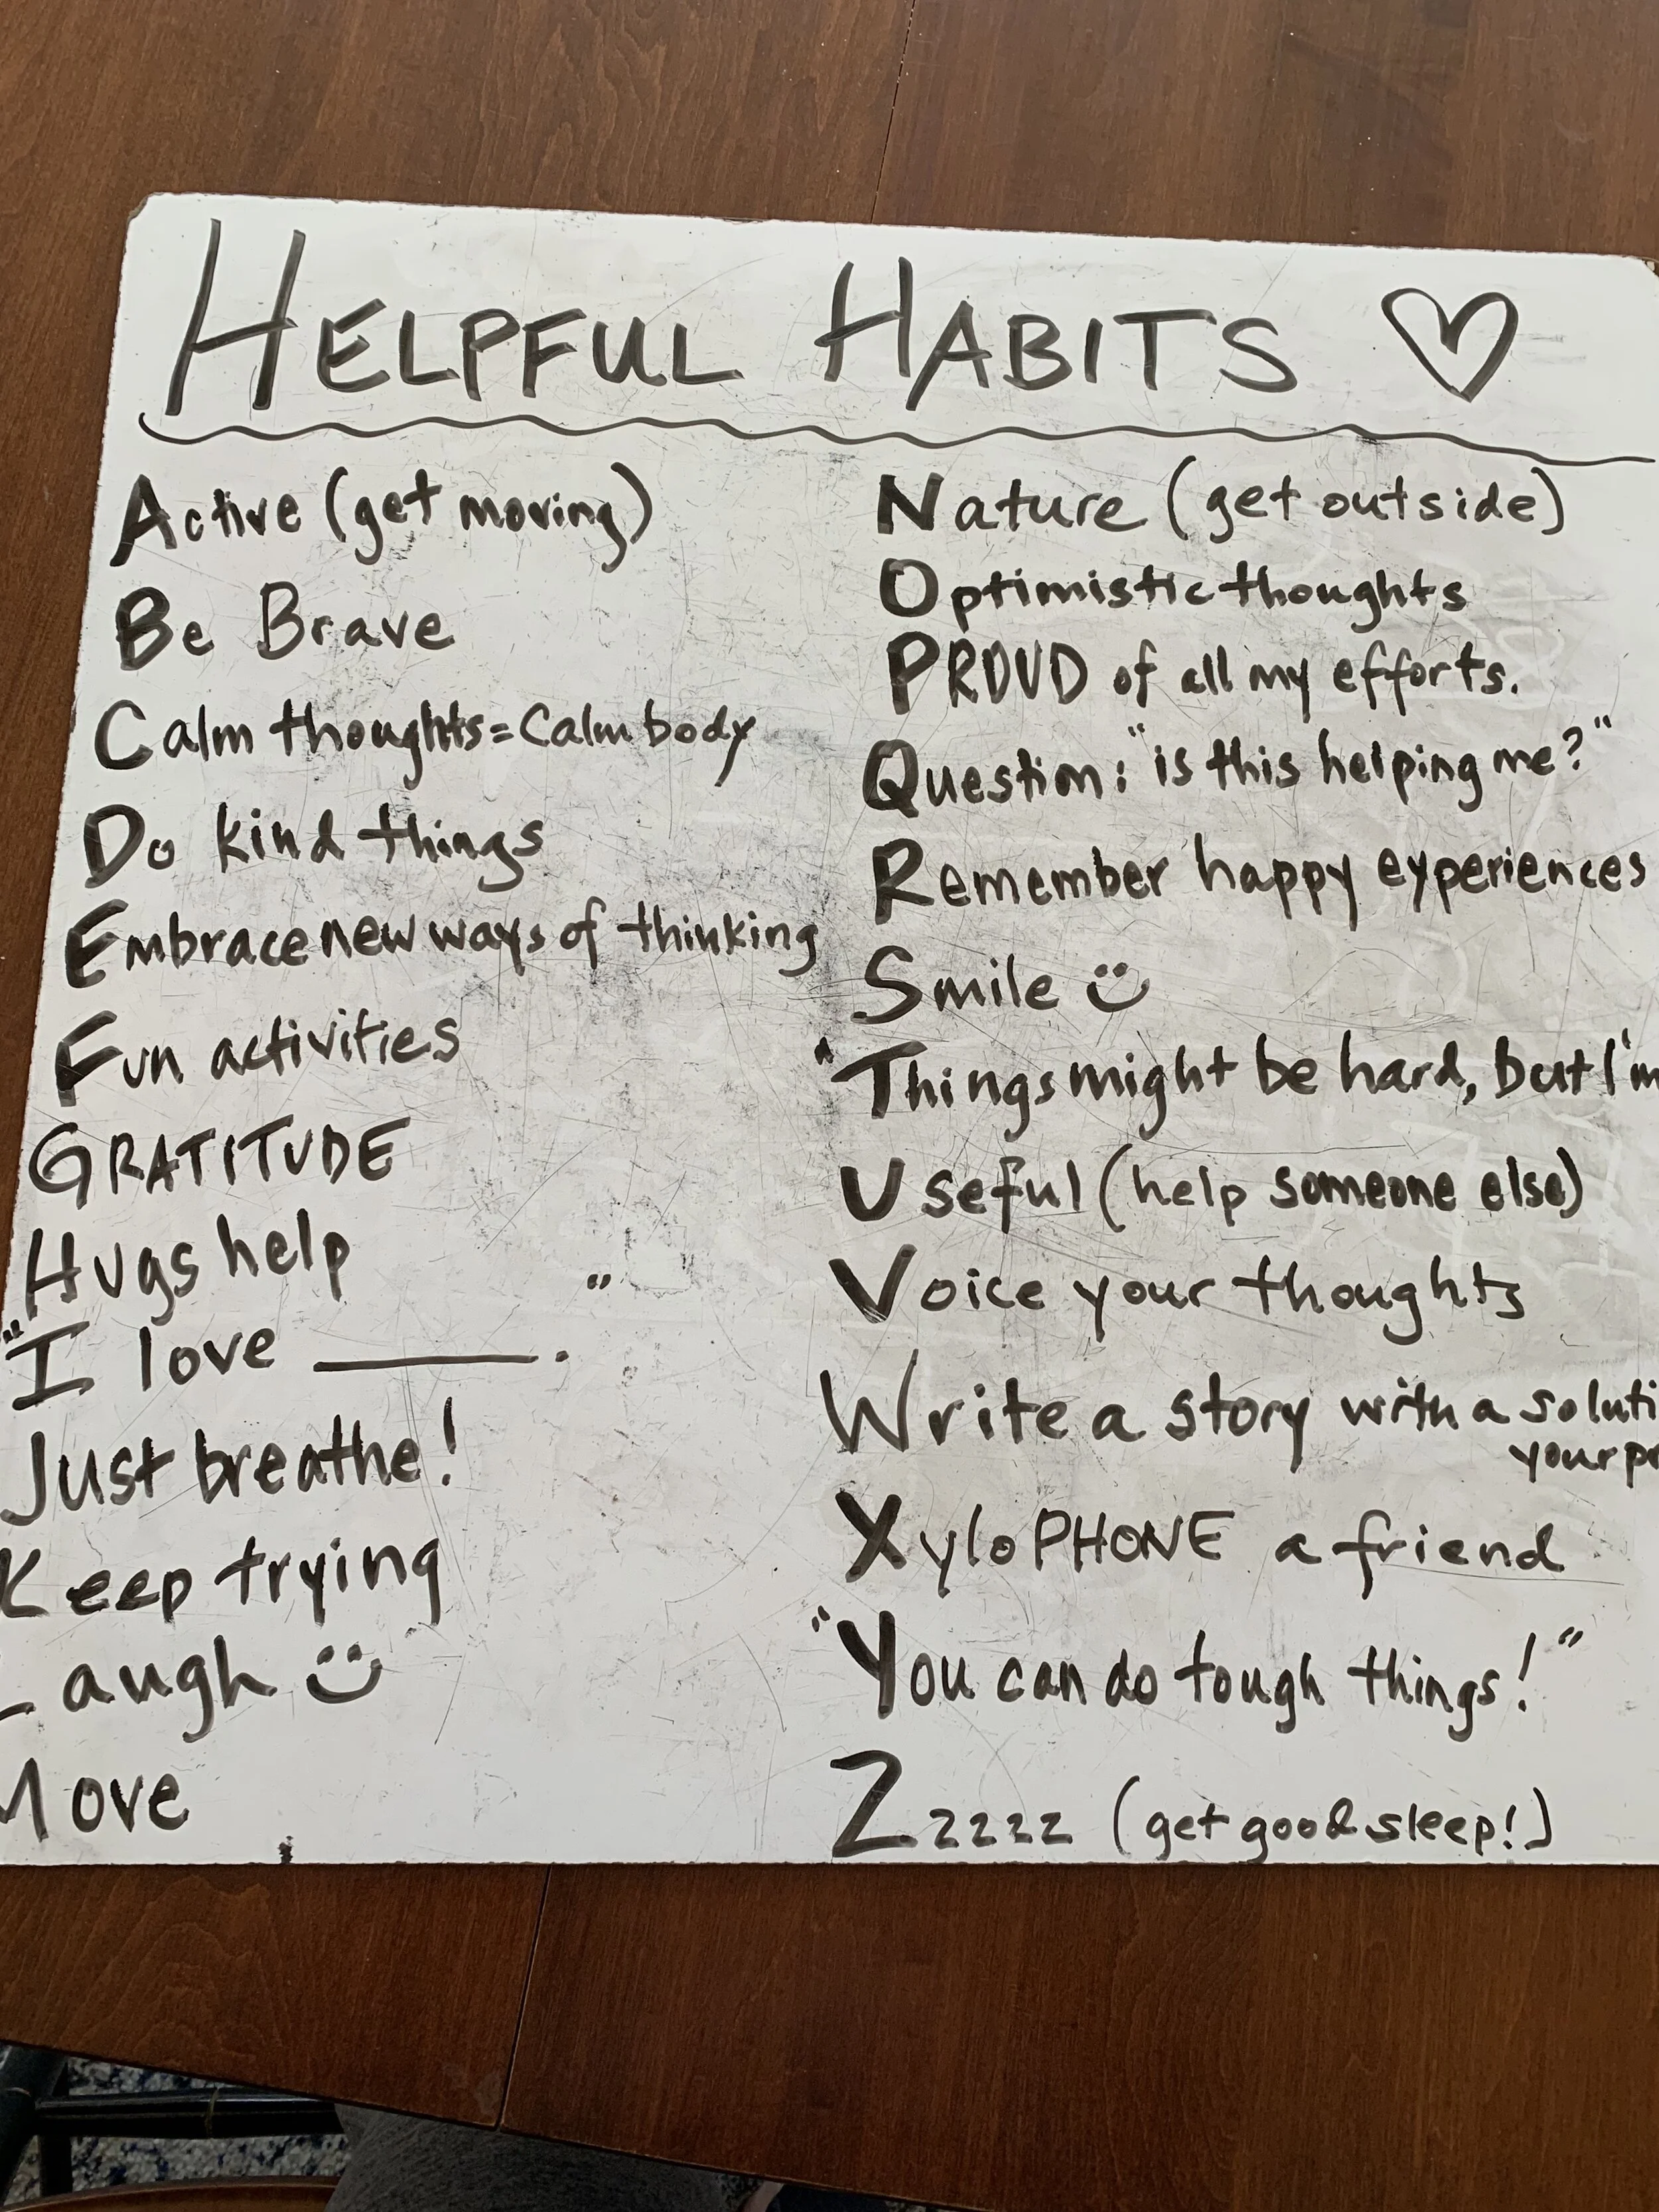 HELPFUL HABITS
Active (get moving)
Be Brave
Calm thoughts = Calm body
Do kind things
Embrace new ways of thinking
Fun activities
GRATITUDE
Hugs help
"I love ______."
Just breathe!
Keep trying
Laugh
Move
Nature (get outside)
Optimistic thoughts
PROUD of all my efforts.
Question: "is this helping me?"
Remember happy experiences
Smile
"Things might be hard, but I'm
Useful (help someone else)
Voice your thoughts
Write a story with a
your
XyloPHONE a friend
"You can do tough things!"
Zzzzz (get good sleep!)